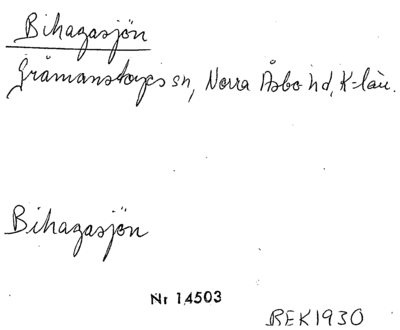 Bihagasjön
Gråmanstorps sn, Norra Åsbo hd, K-län.
Bihagasjön
Nr 14503
BEK1930